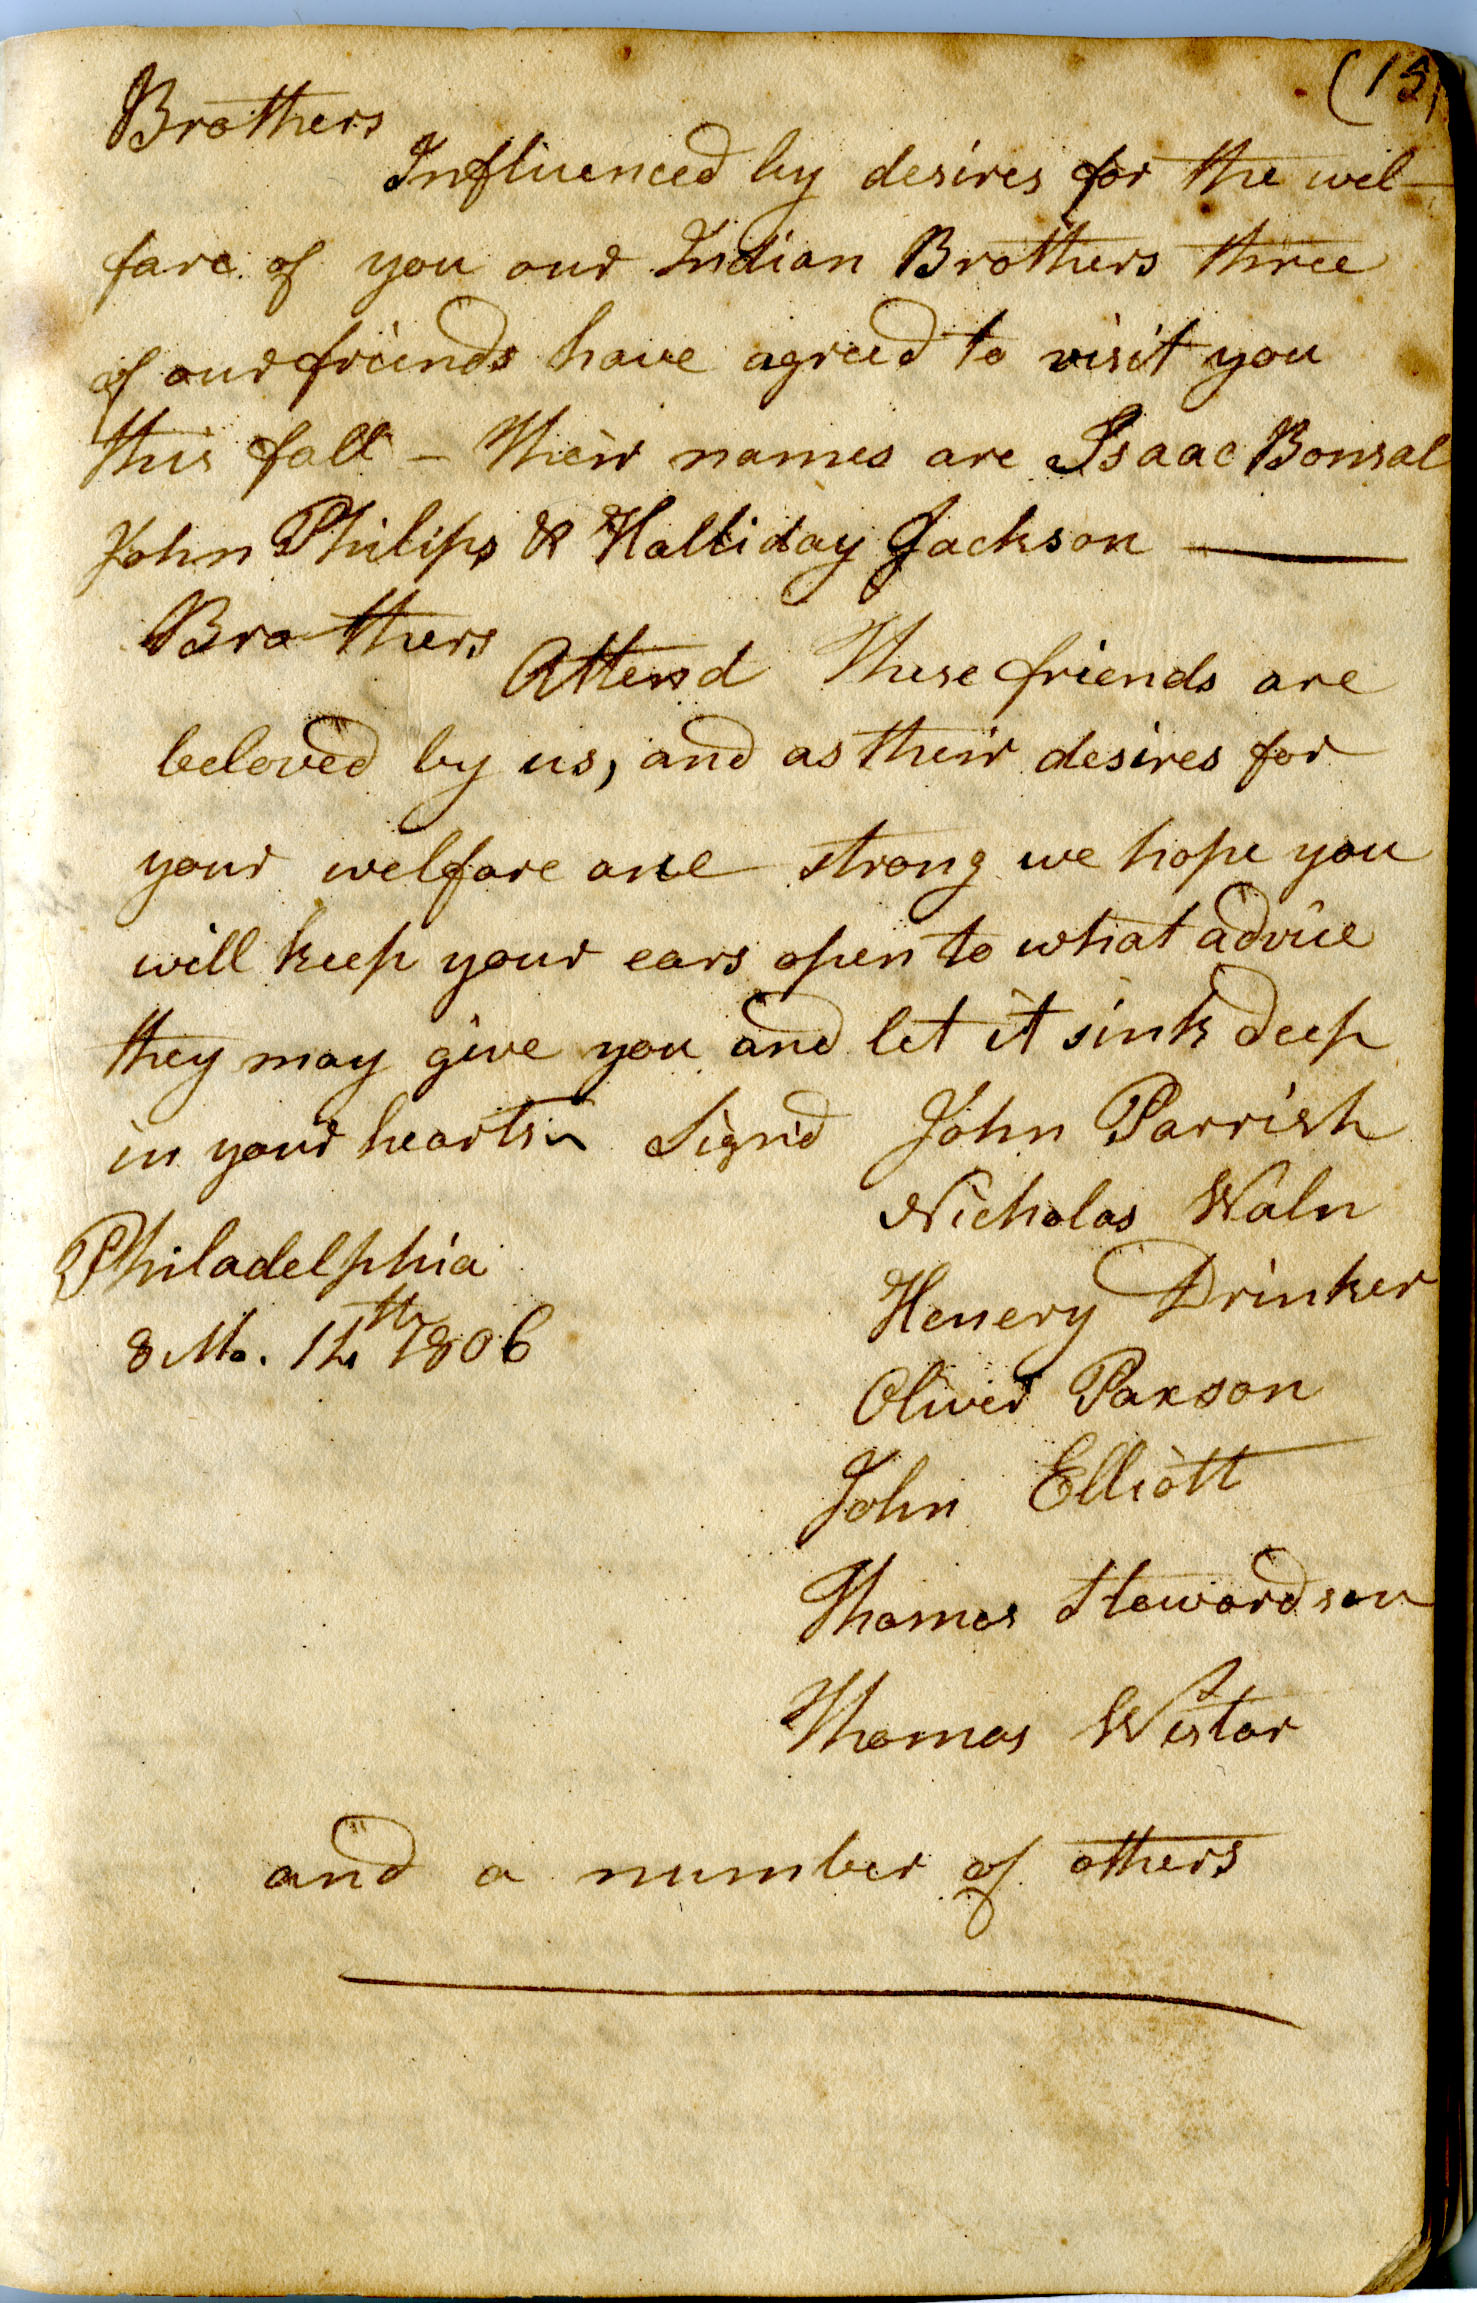 (15)
Brothers
Influenced by desires for the wel-
fare of you our Indian Brothers three
of our friends have agreed to visit you
this fall - Their names are Isaac Bonsal
John Philips & Halliday Jackson
Brothers
Attend These friends are
beloved by us, and as their desires for
your welfare are strong we hope you
will keep your ears open to what advice
they may give you and let it sink deep
in your hearts Sign'd John Parrish
Nicholas Waln
Philadelphia
Henery Drinker
8 Mo. 12th 1806
Oliver Paxson
John Elliott
Thomas Stewardson
Thomas Wistar
and a number of others